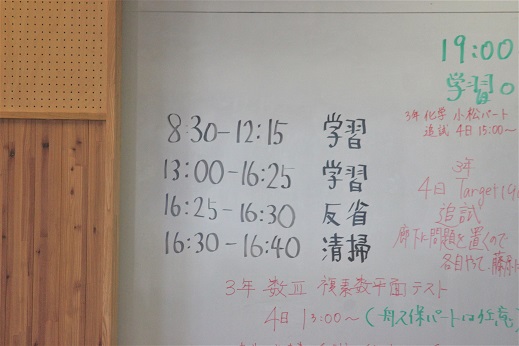 19:00
学習
3年 化学 小松パート
追試 4日 15:00～
8:30-12:15 学習
13:00-16:25 学習
16:25-16:30 反省
16:30-16:40 清掃
3年
4日 Target 19
追試
廊下に問題を置くので
各自やって
3年 数Ⅲ 複素数平面テスト
4日 13:00～